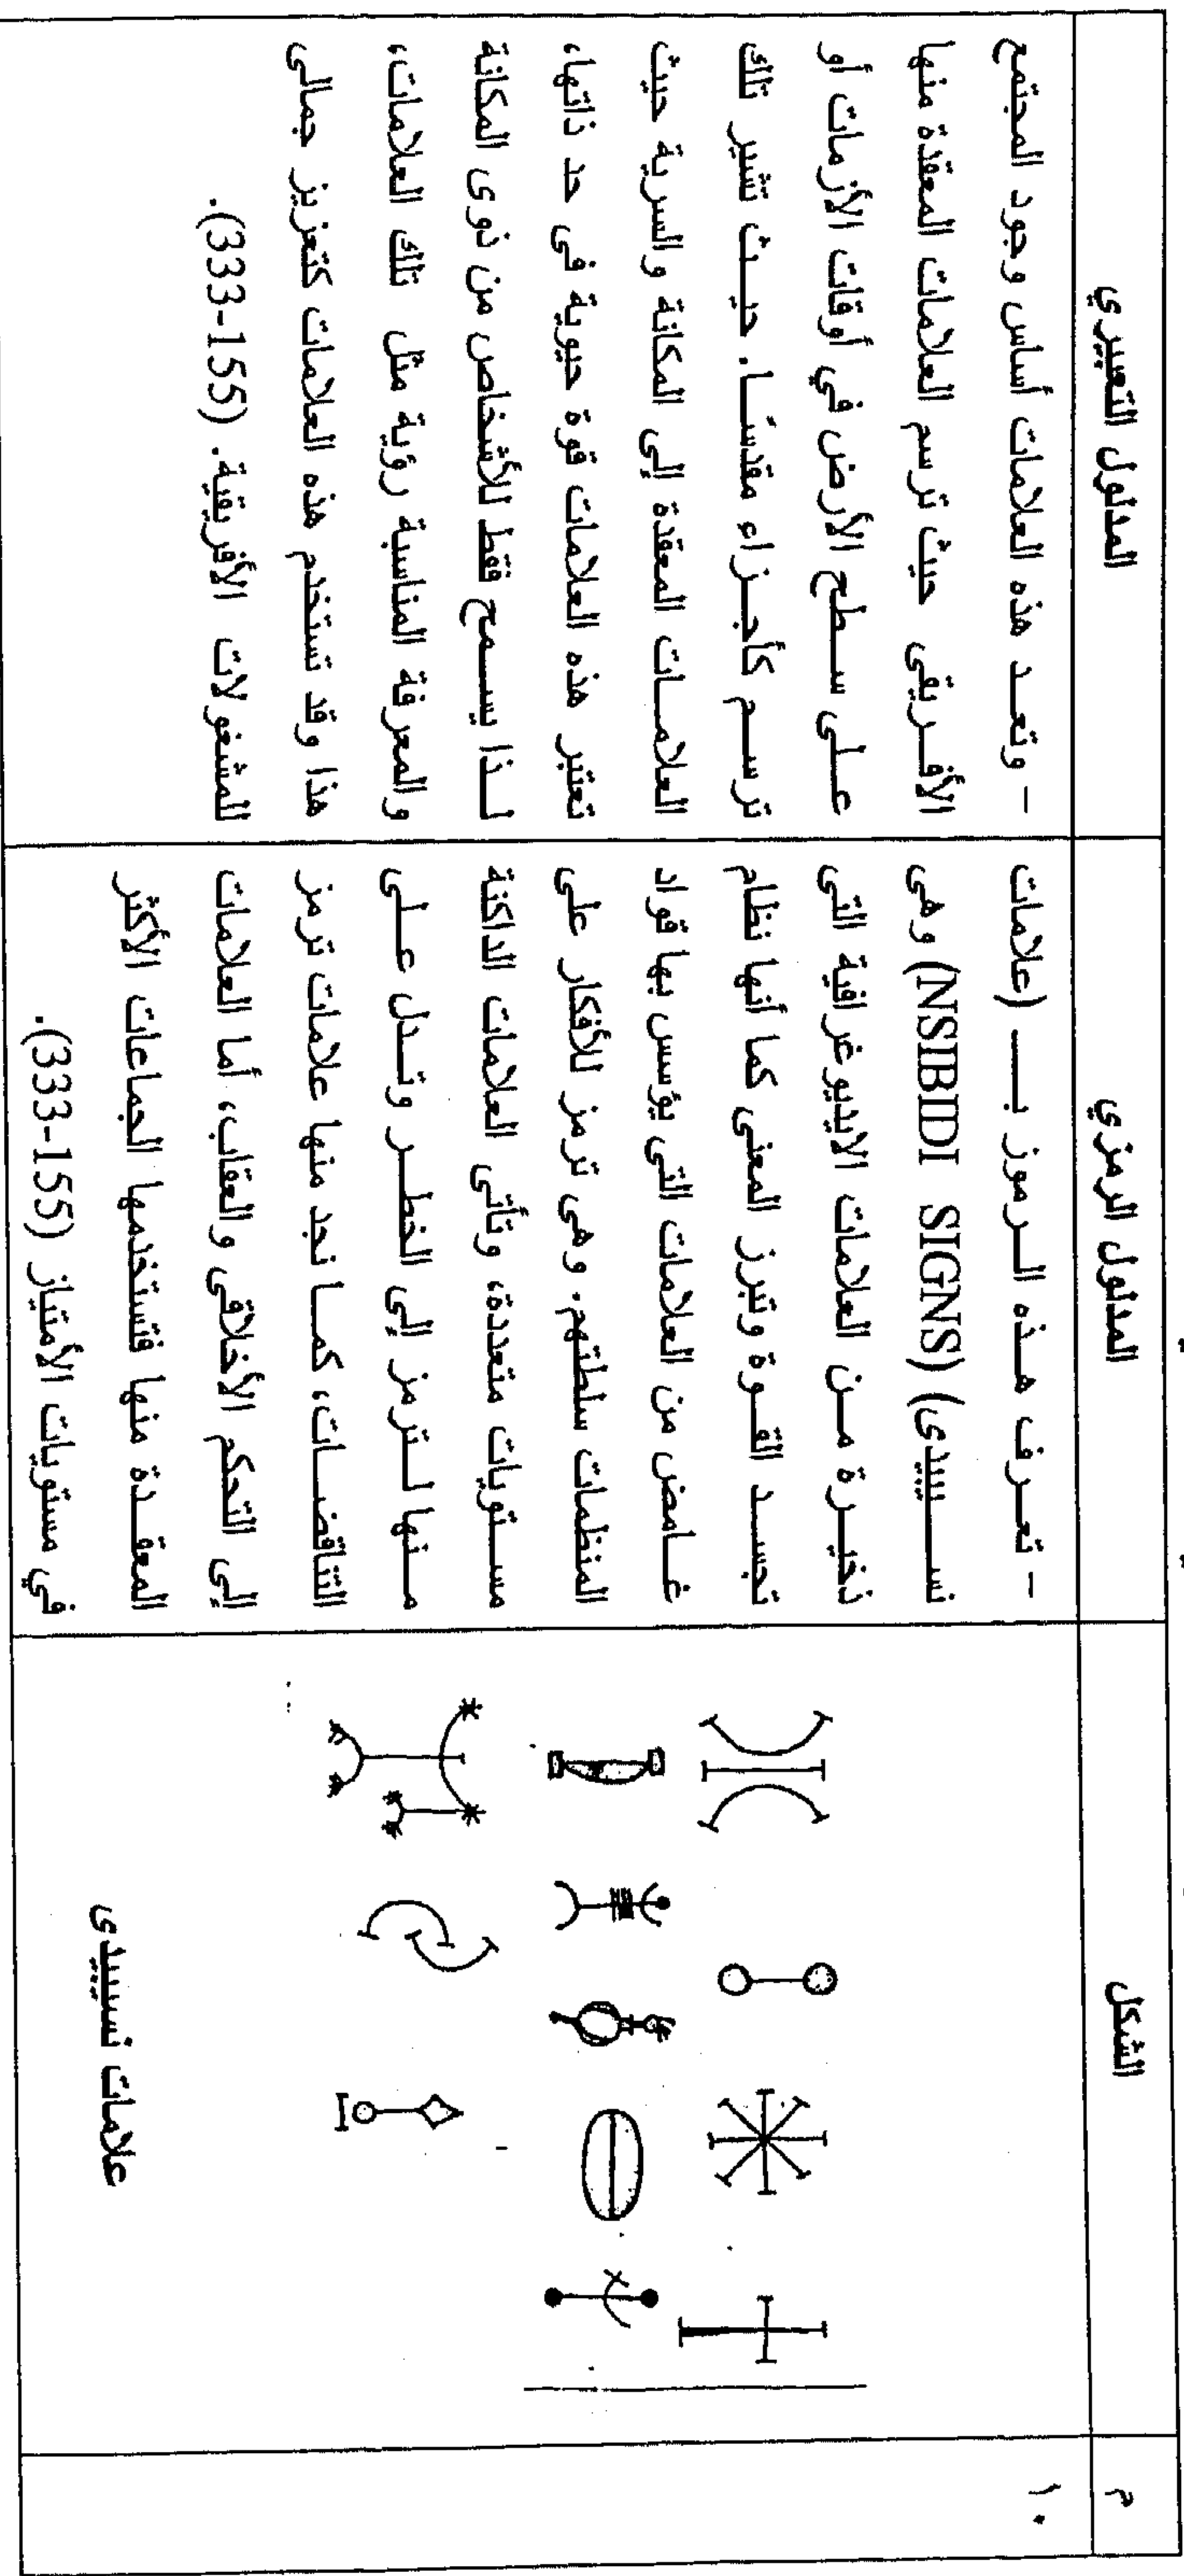 م
الشكل
المدلول الرمزي
المدلول التعبيري
١٠
علامات نسيبيدى
- تعرف هذه الرموز بـ (علامات
نسيبيدى) (NSIBIDI SIGNS) وهى
ذخيرة من العلامات الايديوغرافية التى
تجسد القوة وتبرز المعنى كما أنها نظام
غامض من العلامات التى يؤسس بها قواد
المنظمات سلطتهم. وهى ترمز للأفكار على
مستويات متعددة، وتأتى العلامات الداكنة
منها لترمز إلى الخطر وتدل على
التناقضات، كما نجد منها علامات ترمز
إلى التحكم الأخلاقى والعقاب، أما العلامات
المعقدة منها فتستخدمها الجماعات الأكثر
في مستويات الأمتياز (155-333).
- وتعد هذه العلامات أساس وجود المجتمع
الأفريقى حيث ترسم العلامات المعقدة منها
على سطح الأرض في أوقات الأزمات أو
ترسم كأجزاء مقدسًا. حيث تشير تلك
العلامات المعقدة إلى المكانة والسرية حيث
تعتبر هذه العلامات قوة حيوية فى حد ذاتها،
لذا يسمح فقط للأشخاص من ذوى المكانة
والمعرفة المناسبة رؤية مثل تلك العلامات،
هذا وقد تستخدم هذه العلامات كتعزيز جمالى
للمشغولات الأفريقية. (155-333).